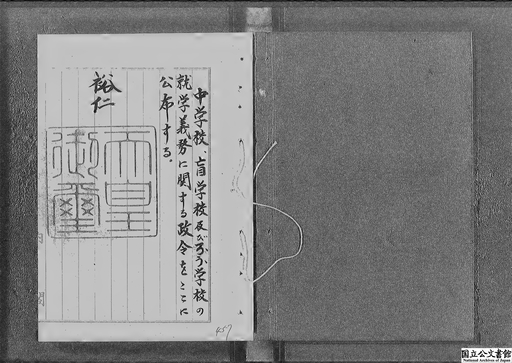 中学校、盲学校及びろう学校の
就学義務に関する政令をここに
公布する。
裕仁
天皇
御璽
457
国立公文書館
National Archives of Japan